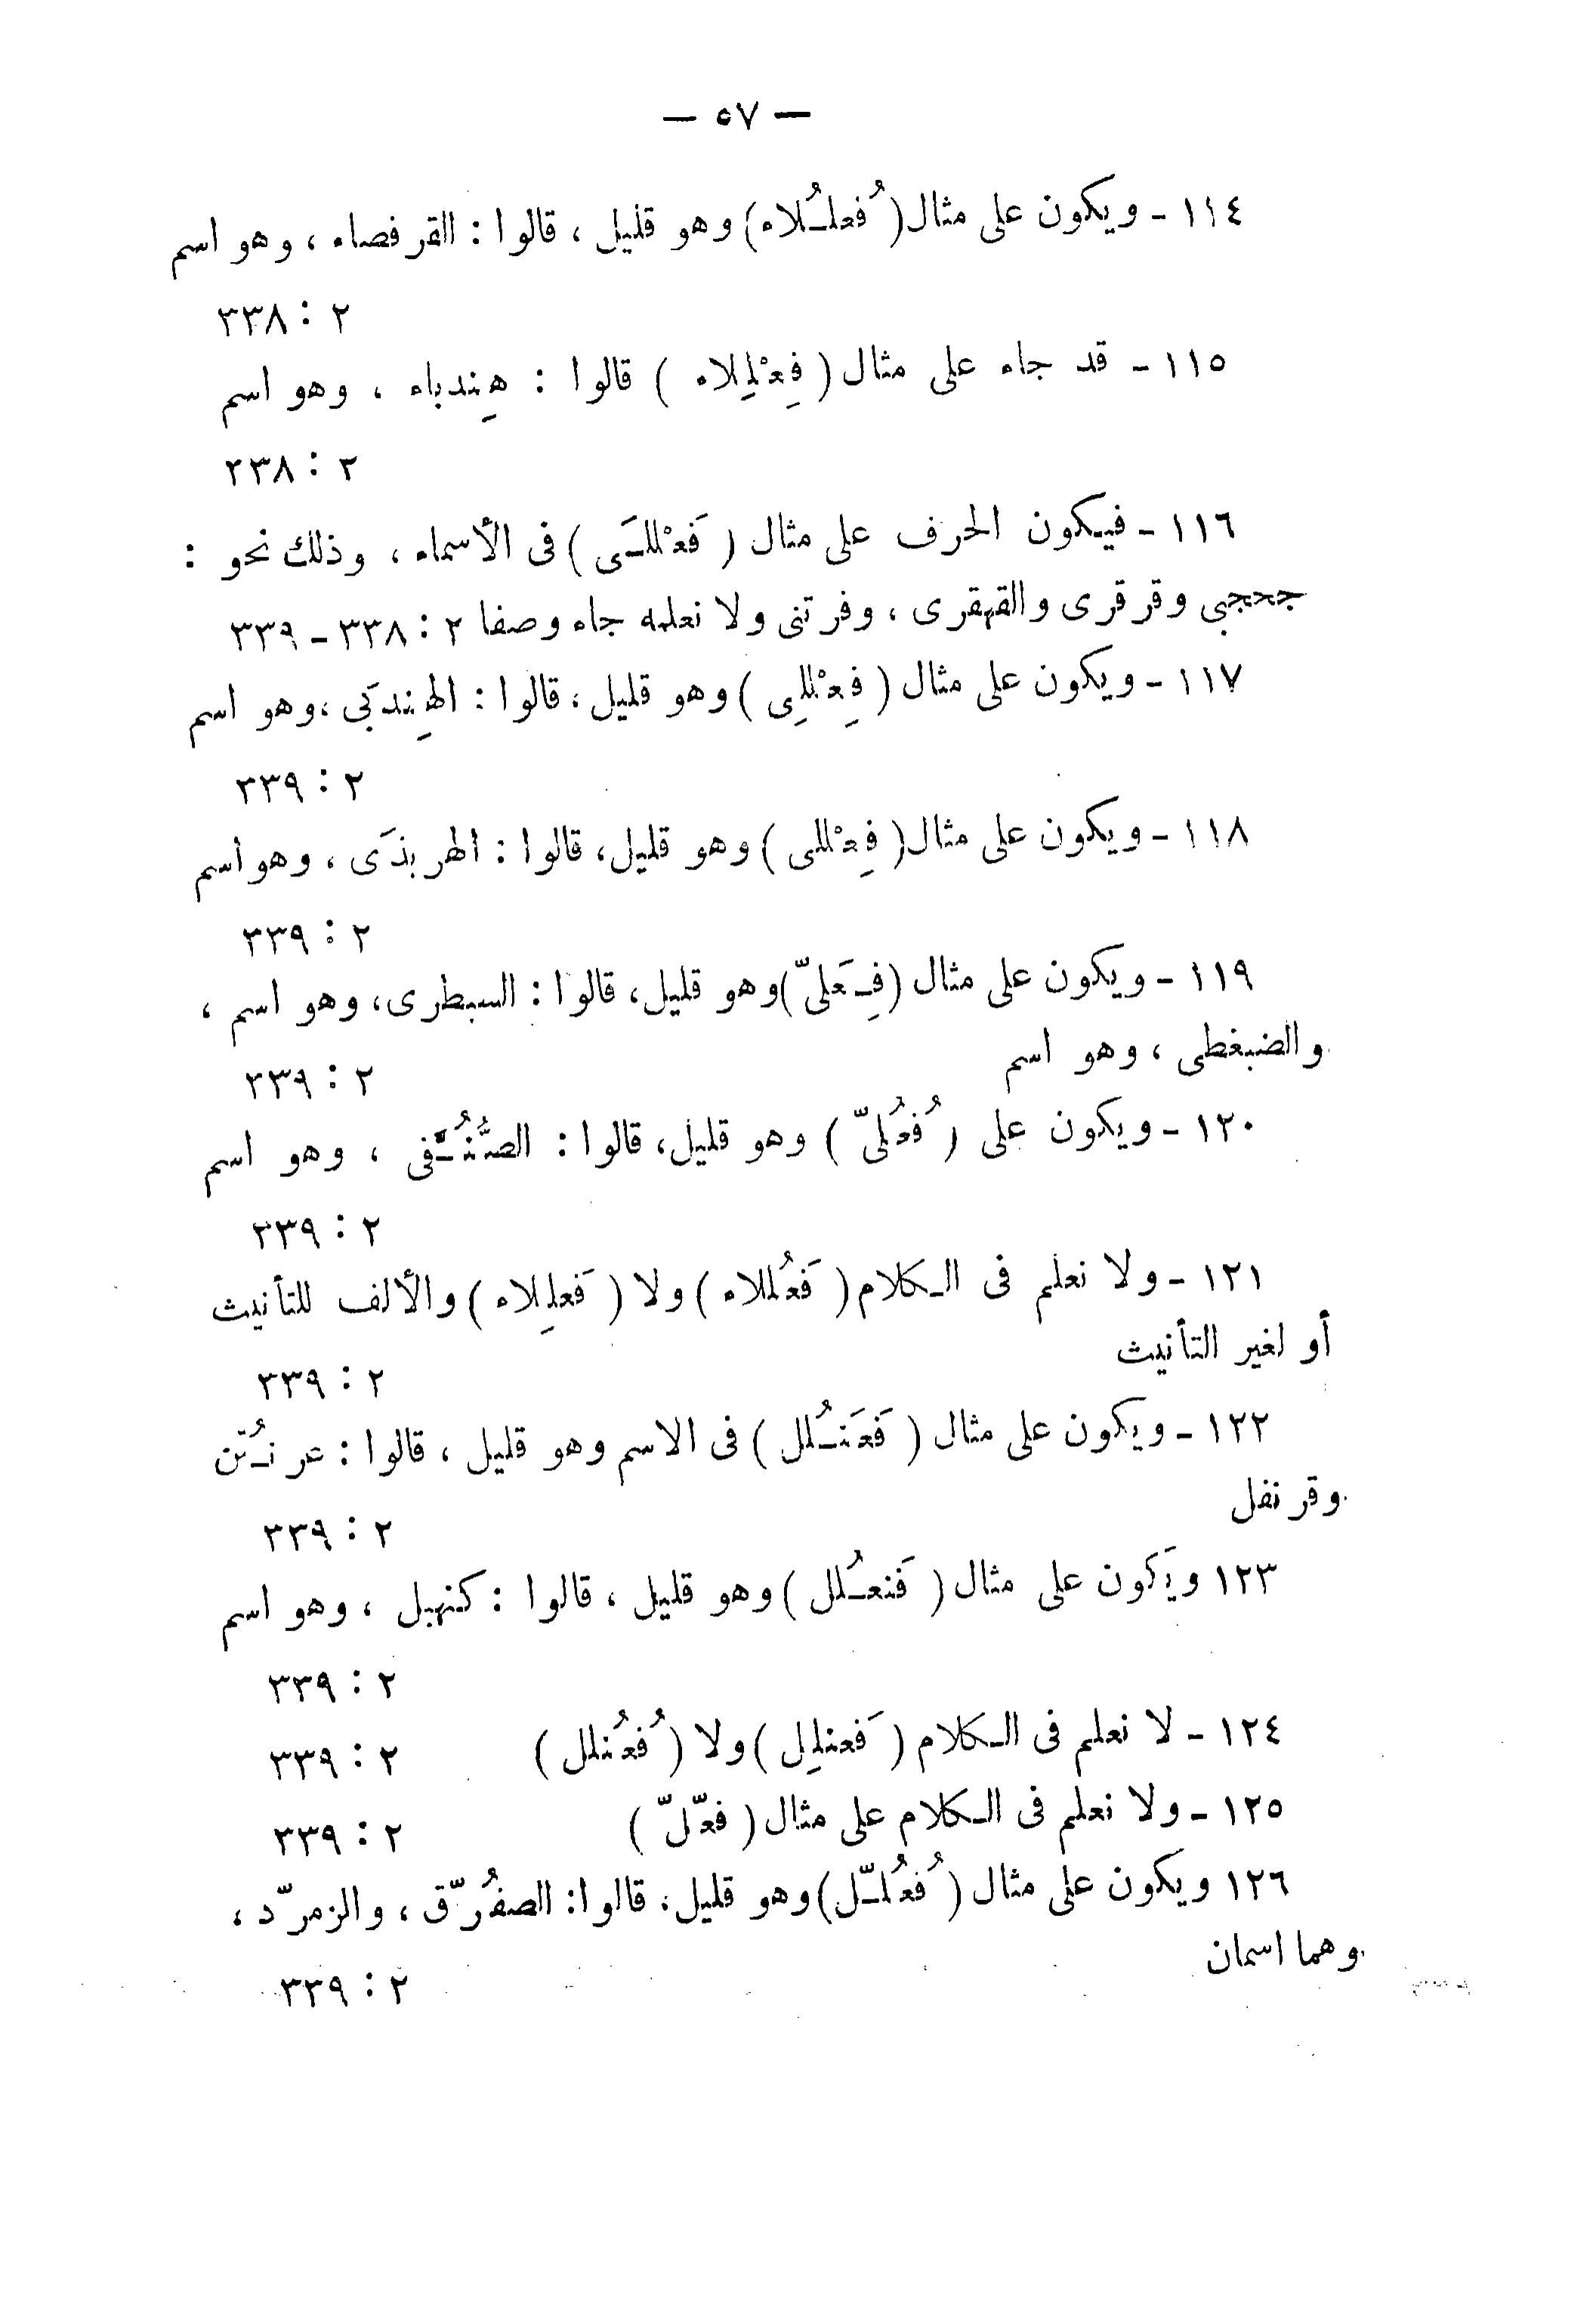 — ٥٧ —
١١٤ - ويكون على مثال (فُعلُلاء) وهو قليل ، قالوا : القرفصاء ، وهو اسم
٢ : ٣٣٨
١١٥ - قد جاء على مثال ( فِعْلِلاء ) قالوا : هِندباء ، وهو اسم
٢ : ٢٣٨
١١٦ - فيكون الحرف على مثال ( فَعْللَى ) فى الأسماء ، وذلك نحو :
جحجبى وقرقرى والقهقرى ، وفرتنى ولا نعلمه جاء وصفا ٢ : ٣٣٨ - ٣٣٩
١١٧ - ويكون على مثال ( فِعْلِلى ) وهو قليل ، قالوا : الهِندَبى ، وهو اسم
٢ : ٣٣٩
١١٨ - ويكون على مثال ( فِعْللى ) وهو قليل، قالوا : الهربذَى ، وهو اسم
٢ : ٣٣٩
١١٩ - ويكون على مثال (فِعَلىّ) وهو قليل، قالوا : السبطرى، وهو اسم ،
والضبغطى ، وهو اسم
٢ : ٣٣٩
١٢٠ - ويكون على ( فُعُلىّ ) وهو قليل، قالوا : الصُّنُـَّفى ، وهو اسم
٢ : ٣٣٩
١٢١ - ولا نعلم فى الكلام ( فَعْلُلاء ) ولا ( فَعلِلاء ) والألف للتأنيث
أو لغير التأنيث
٢ : ٣٣٩
١٢٢ - ويكون على مثال ( فَعَنْـُلل ) فى الاسم وهو قليل ، قالوا : عرنـُتن
وقرنفل
٢ : ٣٣٩
١٢٣ ويَكون على مثال ( فَنعـُلل ) وهو قليل ، قالوا : كنهبل ، وهو اسم
٢ : ٣٣٩
١٢٤ - لا نعلم فى الكلام ( فَعنلِل ) ولا ( فُعُنلل )
٢ : ٣٣٩
١٢٥ - ولا نعلم فى الكلام على مثال ( فعّلّ )
٢ : ٣٣٩
١٢٦ ويكون على مثال ( فُعُلـّل) وهو قليل، قالوا : الصفُرّق ، والزمرّد ،
وهما اسمان
٢ : ٣٣٩